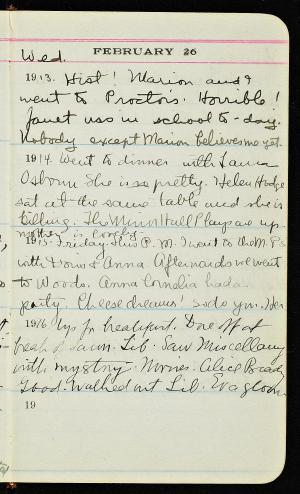 FEBRUARY 26
Wed.
1913. Hist! Marion and I
went to Proctor's. Horrible!
Janet was in school to-day.
Nobody except Marion believes me yet.
1914. Went to dinner with Laura
Osborn. She is so pretty. Helen Hodge
sat at the same table and she is
killing. The Hall Plays are up.
mother is lovely.
1915. Friday this P.M. I went to the M.P's
with Doris & Anna. Afterwards we went
to Woods. Anna Cornelia had a
party. Cheese dreams! Soda yum. Her
1916 Up for breakfast. Dove off at
Lib. Saw Miscellany
with mystery. Movies. Alice Brady
Good. Walked out Lib. Eva gloom
19